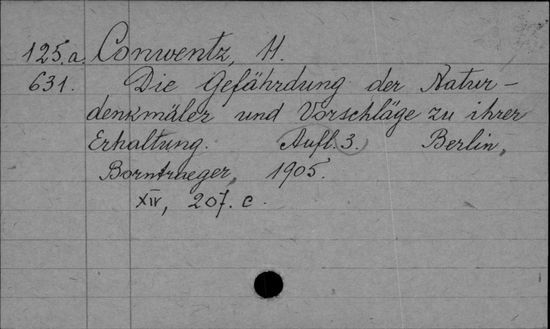 125.a. Conwentz, H.
631. Die Gefährdung der Natur-
denkmäler und Vorschläge zu ihrer
Erhaltung. Aufl. 3. Berlin,
Borntraeger, 1905.
XIV, 207. c.